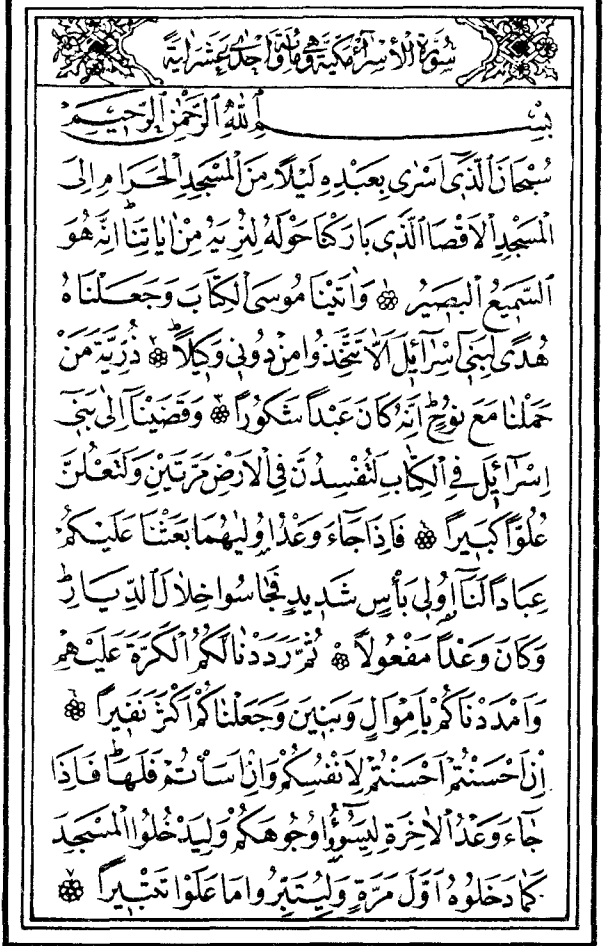 سُورَةُ الْأَسْرَاءِ مَكِّيَّةٌ وَهِيَ مِائَةٌ وَاِحْدٰى عَشَرَ اٰيَةً
بِسْمِ اللّٰهِ الرَّحْمٰنِ الرَّحِيمِ
سُبْحَانَ الَّذِي اَسْرٰى بِعَبْدِهِ لَيْلًا مِنَ الْمَسْجِدِ الْحَرَامِ اِلَى
الْمَسْجِدِ الْاَقْصَا الَّذِي بَارَكْنَا حَوْلَهُ لِنُرِيَهُ مِنْ اٰيَاتِنَاۜ اِنَّهُ هُوَ
السَّمِيعُ الْبَصِيرُ ۝ وَاٰتَيْنَا مُوسَى الْكِتَابَ وَجَعَلْنَاهُ
هُدًى لِبَنِي اِسْرَآئِلَ اَلَّا تَتَّخِذُوا مِنْ دُونِي وَكِيلًاۜ ۝ ذُرِّيَّةَ مَنْ
حَمَلْنَا مَعَ نُوحٍۜ اِنَّهُ كَانَ عَبْدًا شَكُورًا ۝ وَقَضَيْنَآ اِلٰى بَنِي
اِسْرَآئِلَ فِي الْكِتَابِ لَتُفْسِدُنَّ فِي الْاَرْضِ مَرَّتَيْنِ وَلَتَعْلُنَّ
عُلُوًّا كَبِيرًا ۝ فَاِذَا جَآءَ وَعْدُ اُو۫لٰيهُمَا بَعَثْنَا عَلَيْكُمْ
عِبَادًا لَنَآ اُو۬لِي بَأْسٍ شَدِيدٍ فَجَاسُوا خِلَالَ الدِّيَارِۜ
وَكَانَ وَعْدًا مَفْعُولًا ۝ ثُمَّ رَدَدْنَا لَكُمُ الْكَرَّةَ عَلَيْهِمْ
وَاَمْدَدْنَاكُمْ بِاَمْوَالٍ وَبَنِينَ وَجَعَلْنَاكُمْ اَكْثَرَ نَفِيرًا ۝
اِنْ اَحْسَنْتُمْ اَحْسَنْتُمْ لِاَنْفُسِكُمْ وَاِنْ اَسَأْتُمْ فَلَهَاۜ فَاِذَا
جَآءَ وَعْدُ الْاٰخِرَةِ لِيَسُٓوؤُا وُجُوهَكُمْ وَلِيَدْخُلُوا الْمَسْجِدَ
كَمَا دَخَلُوهُ اَوَّلَ مَرَّةٍ وَلِيُتَبِّرُوا مَا عَلَوْا تَتْبِيرًا ۝